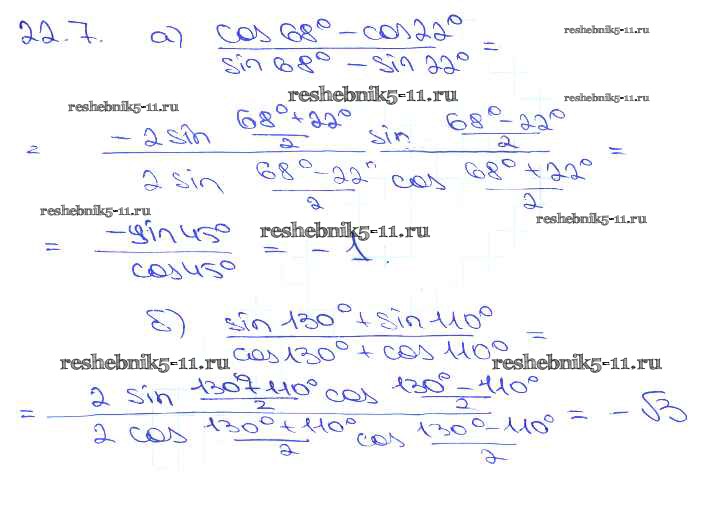 22.7. а) (cos68° - cos22°)/(sin68° - sin22°) =
reshebnik5-11.ru
reshebnik5-11.ru
reshebnik5-11.ru reshebnik5-11.ru
= (-2 sin (68°+22°)/2 sin (68°-22°)/2)/(2 sin (68°-22°)/2 cos (68°+22°)/2) =
reshebnik5-11.ru reshebnik5-11.ru
= (-sin45°)/(cos45°) = -1.
reshebnik5-11.ru
б) (sin130° + sin110°)/(cos130° + cos110°) =
reshebnik5-11.ru reshebnik5-11.ru
= (2 sin (130°+110°)/2 cos (130°-110°)/2)/(2 cos (130°+110°)/2 cos (130°-110°)/2) = -√3